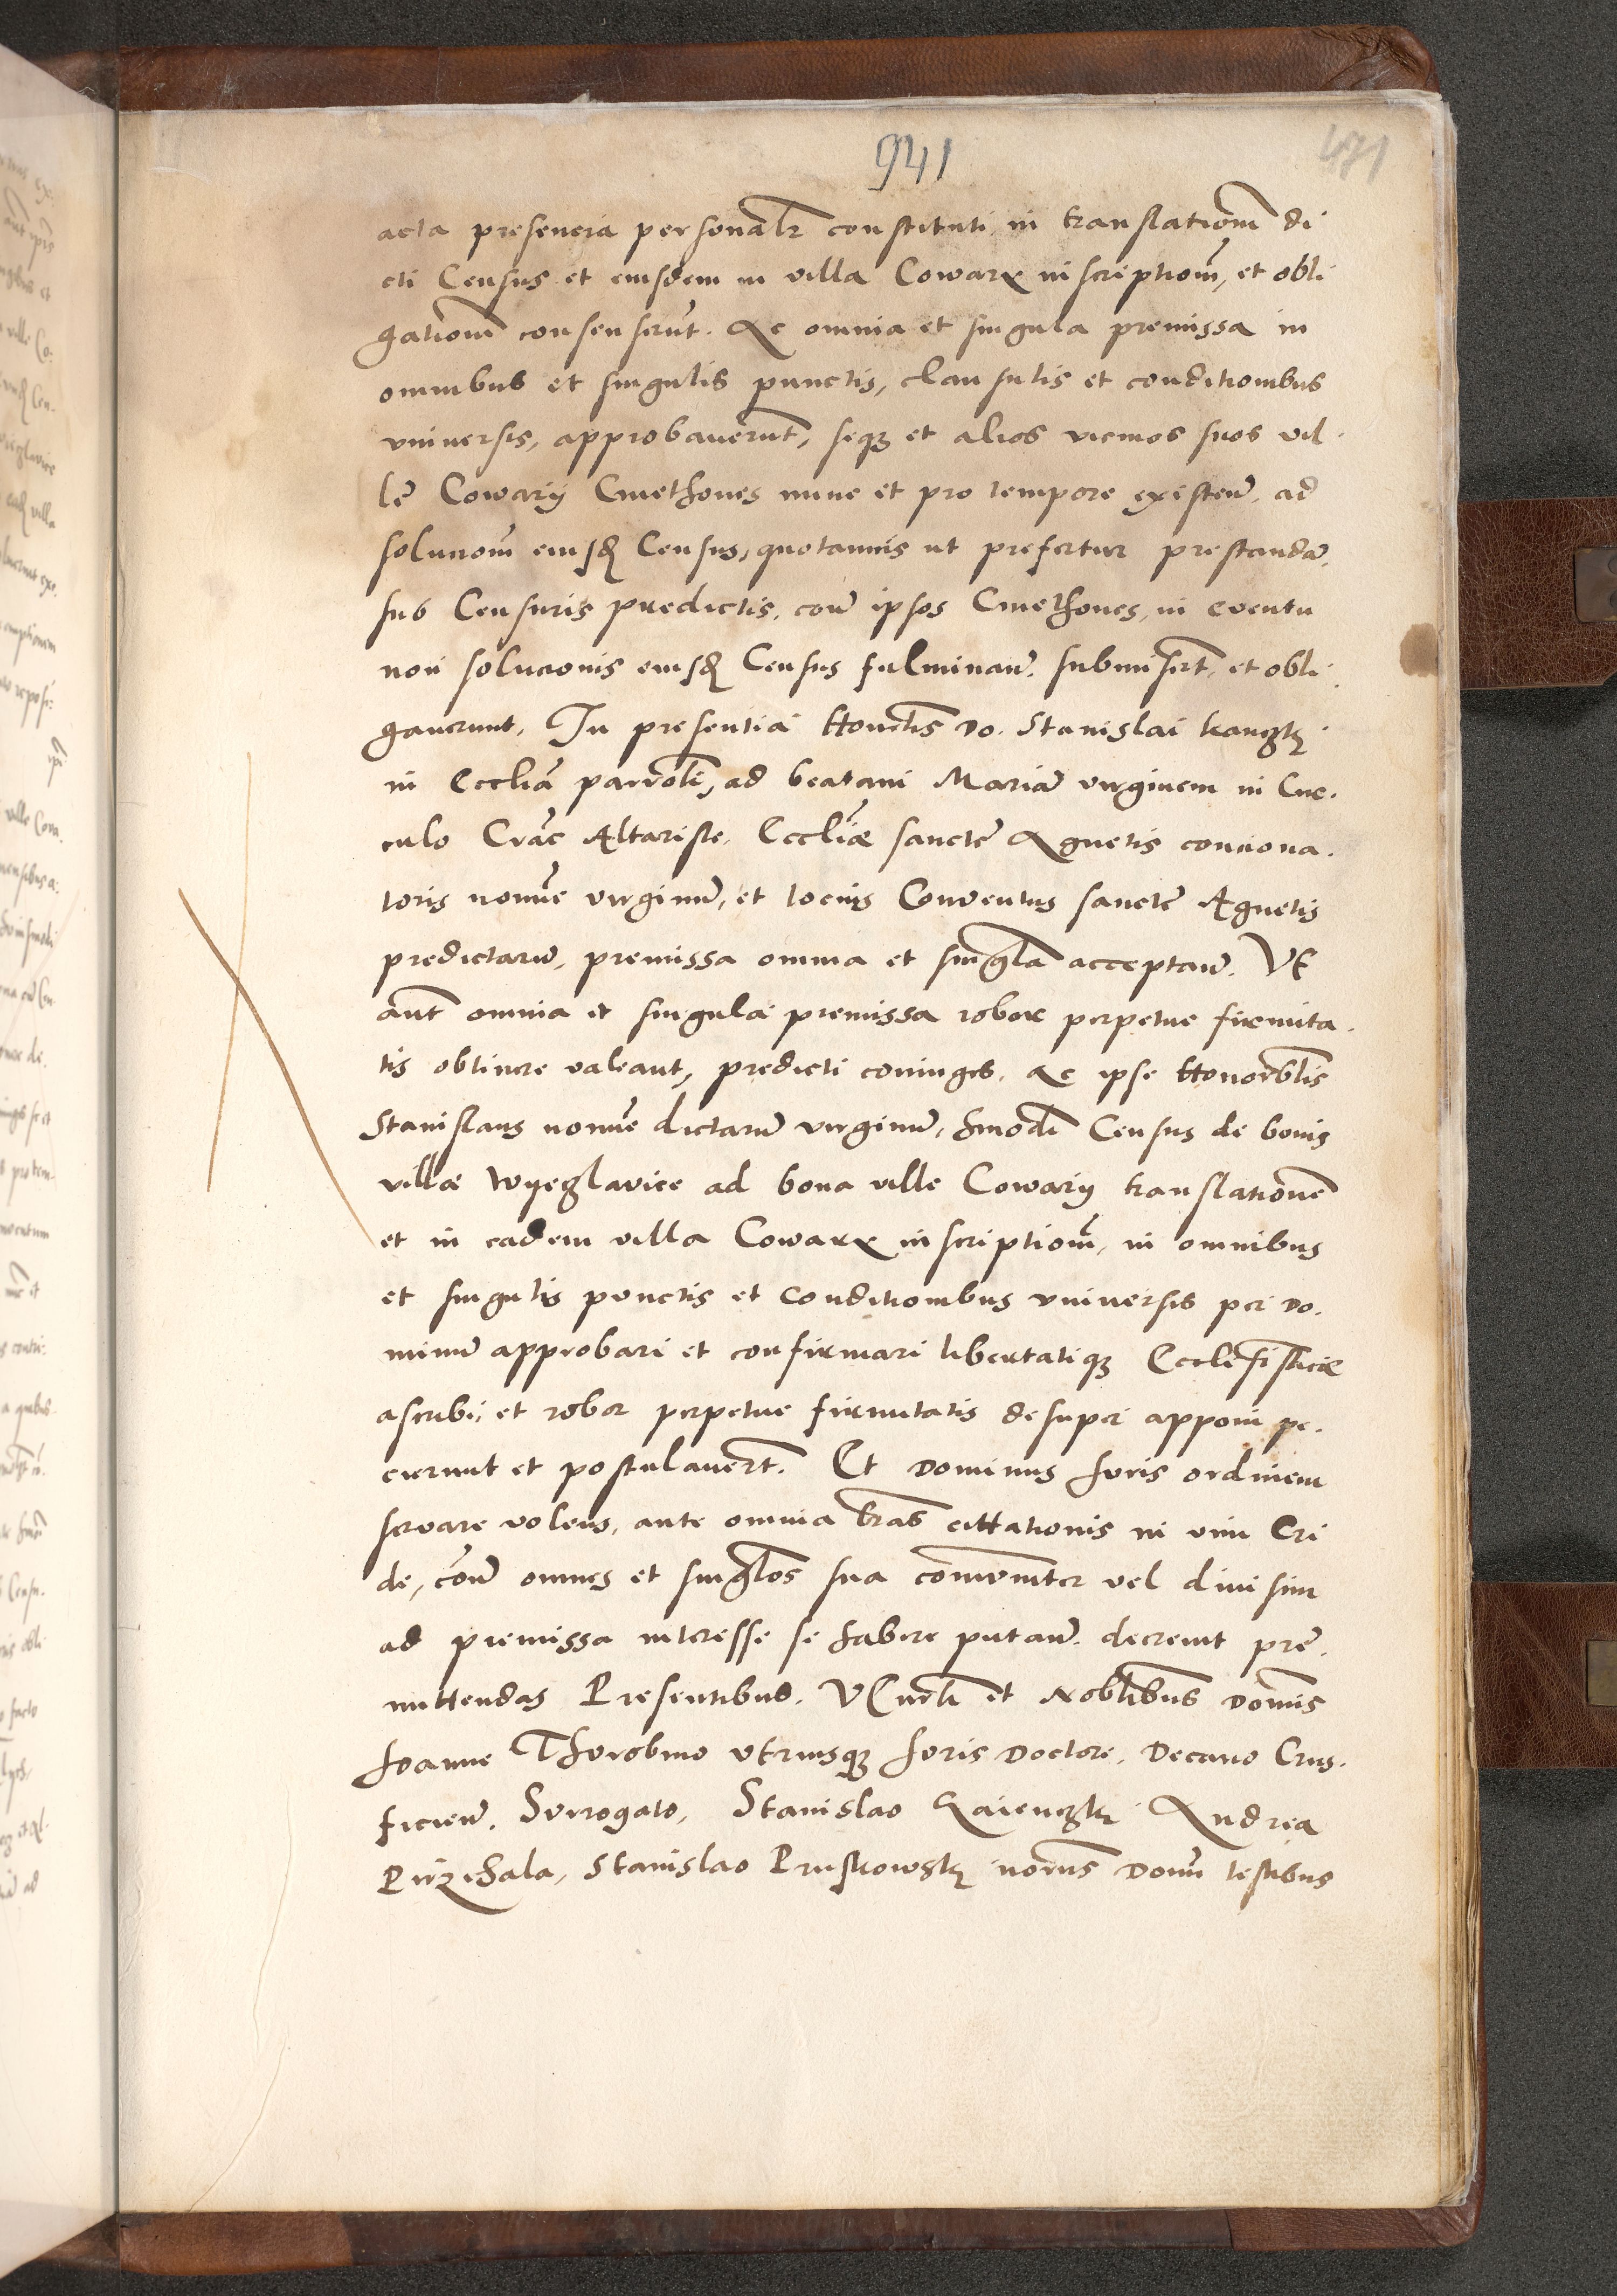 941
471
acta presencia personalr constituti in translationem di
cti Census et eiusdem in villa Cowary inscriptionem, et obli
gationem consenserunt. Ac omnia et singula premissa in
omnibus et singulis punctis, clausulis et conditionibus
vniuersis, approbauerunt, seq3 et alios vicinos suos vil
le Cowarÿ Cmethones nunc et pro tempore existen. ad
solucionem eiusd Census, quotannis ut prefertur prestandam.
sub Censuris predictis, contra ipsos Cmethones, in euentu
non solucionis eiusd Census fulminan. submiserunt, et obli
gauerunt. In presentia Honorabilis Do. Stanislai
in Ecclia parrochli, ad beatam Mariam virginem in Cir
culo Crac Altariste, Eccliae sancte Agnetis conciona
toris nomine virginum, et tocius Conuentus sancte Agnetis
predictarum, premissa omnia et singula acceptan. Vt
aut omnia et singula premissa robor perpetue firmita
tis obtinere valeant, predicti coniuges, ac ipse Honorablis
Stanislaus nomine dictarum virginum, hmodi Census de bonis
villae Wyeglavice ad bona ville Cowarÿ translationem
et in eadem villa Cowary inscriptionem, in omnibus
et singulis punctis et conditionibus vniuersis per Do.
minum approbari et confirmari libertatiq3 Ecclesiasticae
ascribi, et robor perpetue firmitatis desuper apponi pe.
cierunt et postulauerunt. Et Dominus Juris ordinem
seruare volens, ante omnia lras cittationis in vim Cri
de, contra omnes et singulos sua communiter vel diuisim
ad premissa interesse se habere putan. decreuit pre.
mittendas Presentibus. Venerabili et Noblibus Dominis
Joanne Thurobino vtriusq3 Juris Doctore, Decano Crus.
ficien. Surrogato, Stanislao Andrea
Pirzchala, Stanislao Pruskowski Domini testibus